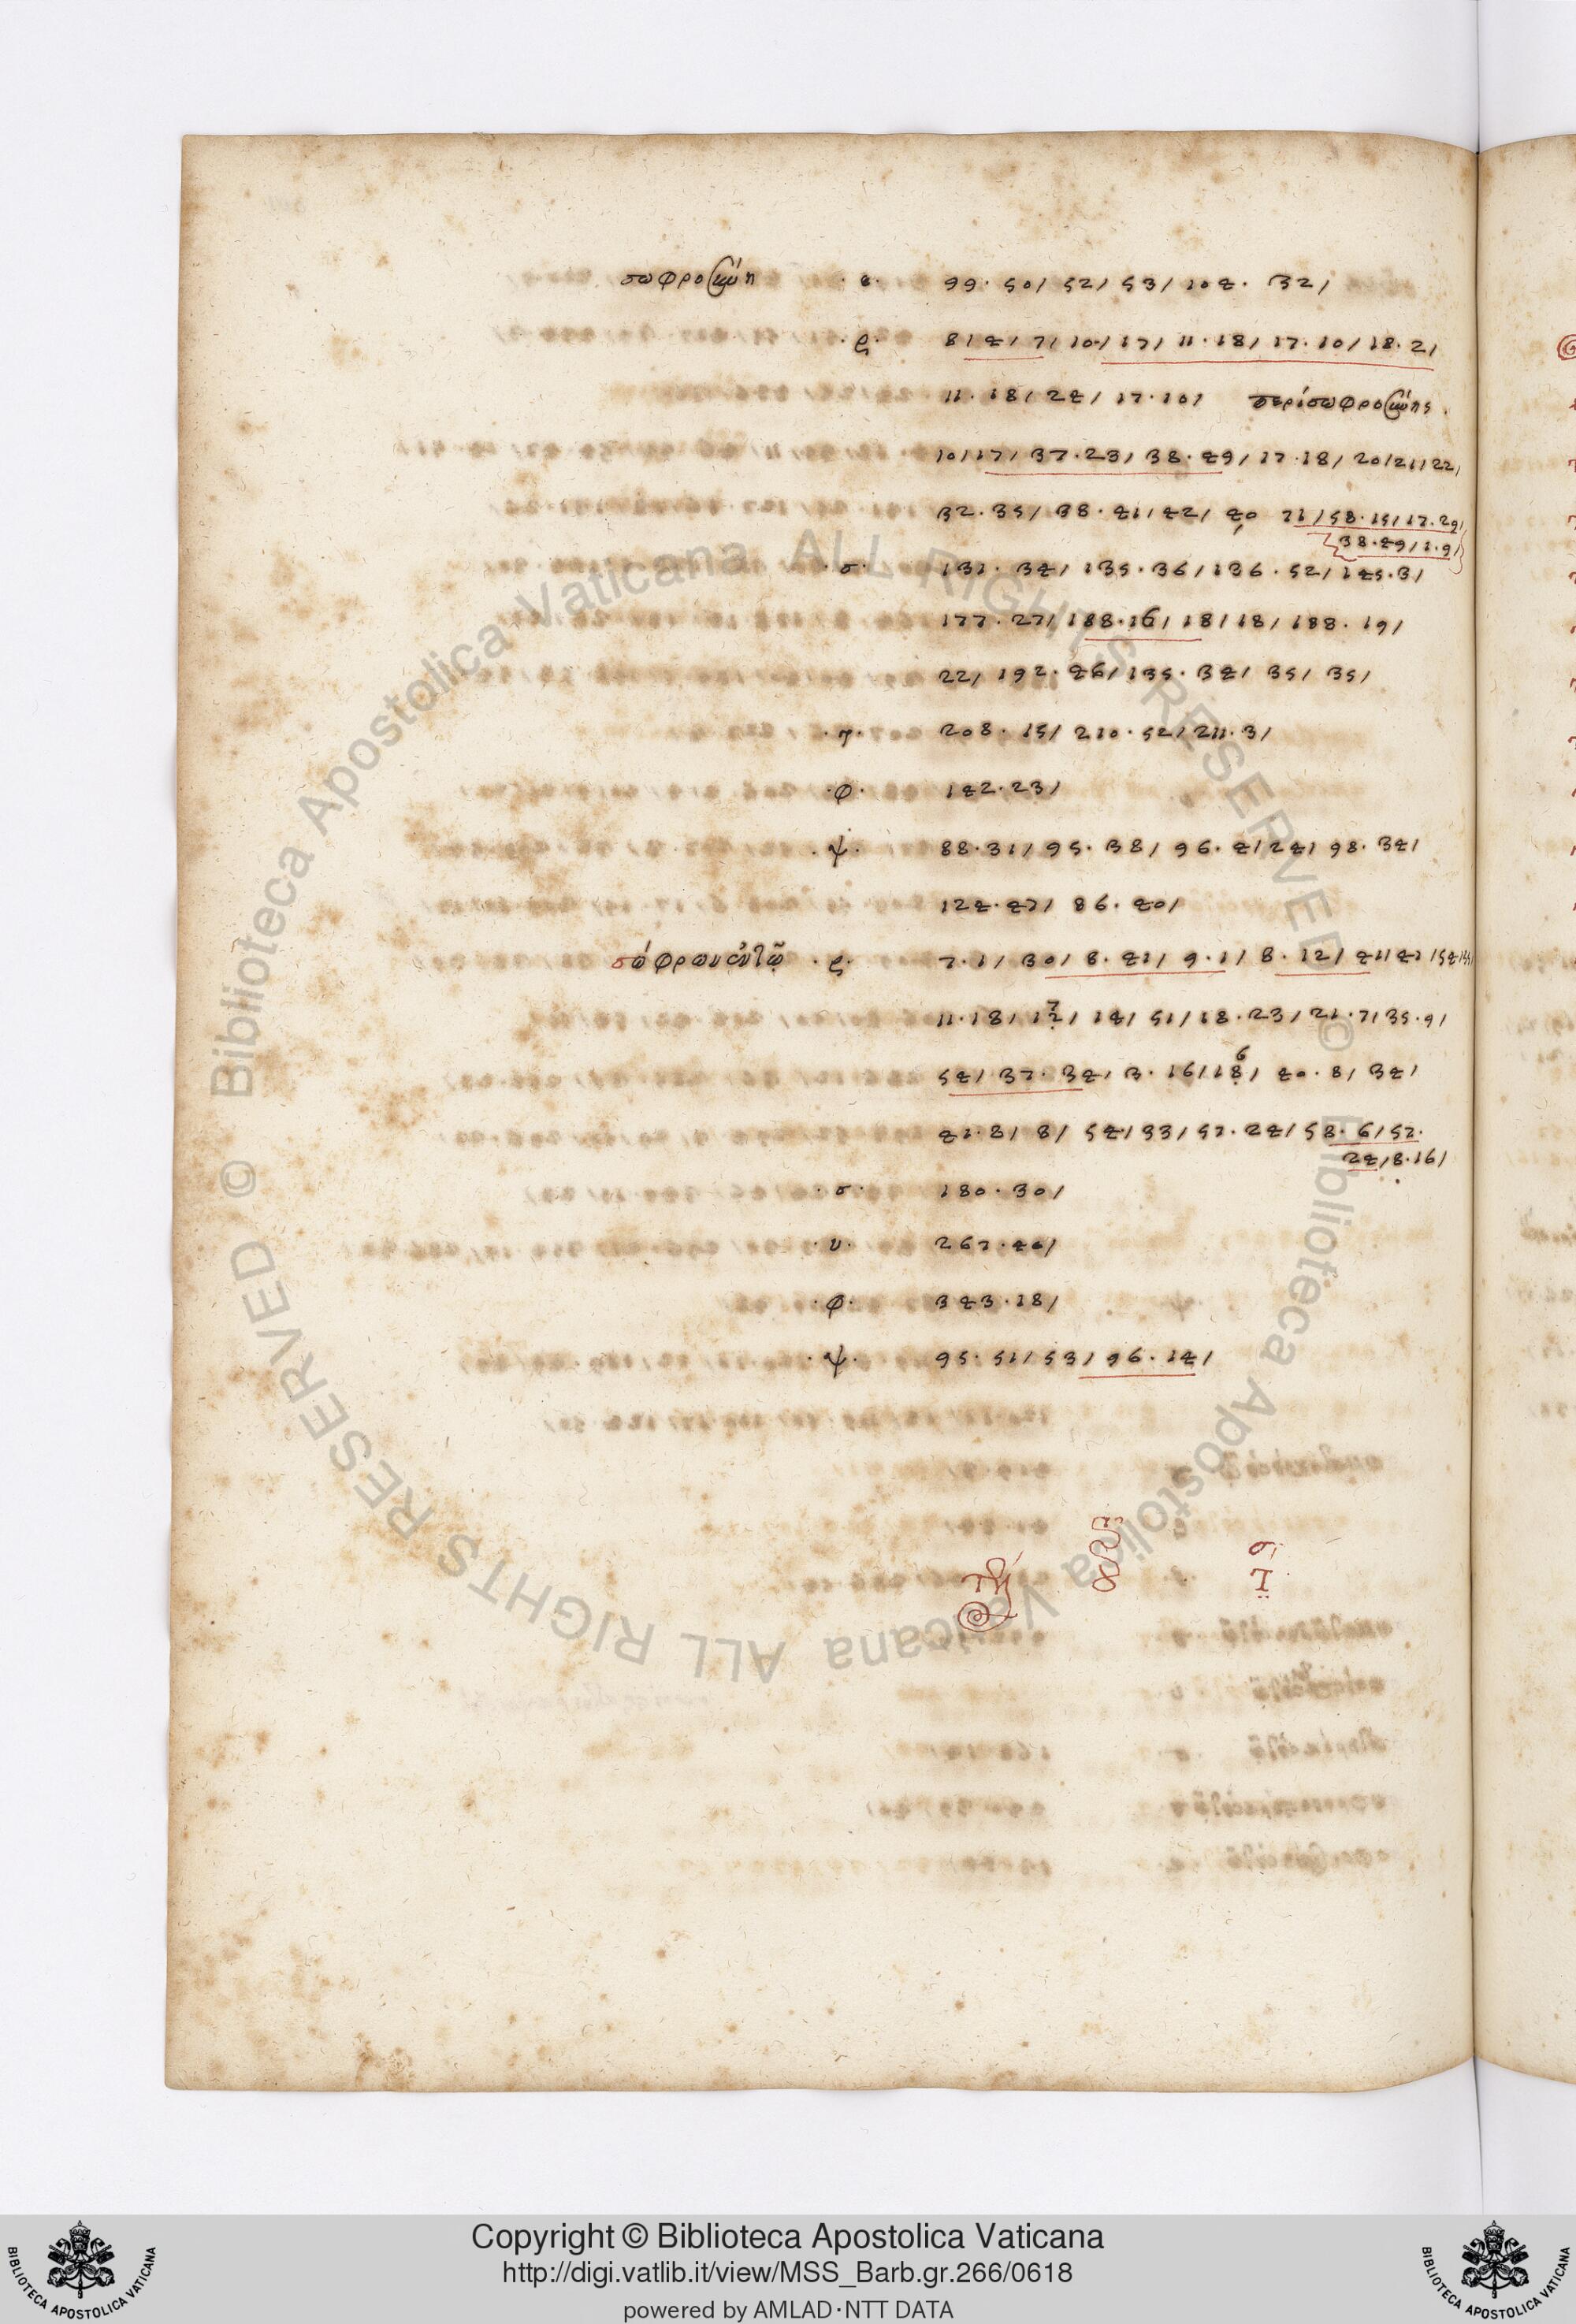 σωφροσύνη · ε · 99 · 50 / 52 / 53 / 104 · 32 /
· ϛ · 8 / 4 / 7 / 10 / 17 / 11 · 18 / 17 · 10 / 18 · 2 /
11 · 18 / 24 / 17 · 10 / περὶ σωφροσύνης ·
10 / 17 / 37 · 23 / 38 · 49 / 17 · 18 / 20 / 21 / 22 /
32 · 35 / 38 · 41 / 42 / 40 71 / 58 · 15 / 17 · 29 /
38 · 49 / 1 · 9 /
· σ · 131 · 34 / 135 · 36 / 136 · 52 / 145 · 3 /
177 · 27 / 188 · 16 / 18 / 18 / 188 · 19 /
22 / 192 · 46 / 135 · 34 / 35 / 35 /
· τ · 208 · 15 / 210 · 52 / 211 · 3 /
· φ · 142 · 23 /
· ψ · 88 · 31 / 95 · 38 / 96 · 4 / 24 / 98 · 34 /
124 · 47 / 86 · 40 /
σώφρων · ϛ · 7 · 1 / 30 / 8 · 41 / 9 · 1 / 8 · 12 / 41 / 41 / 54
11 · 18 / 12 / 14 / 51 / 18 · 23 / 21 · 7 / 35 · 9 /
7
54 / 37 · 34 / 3 · 16 / 18 / 40 · 8 / 34 /
6
41 · 8 / 8 / 54 / 33 / 57 · 24 / 58 · 6 / 57 ·
24 / 8 · 16 /
· σ · 180 · 30 /
· υ · 267 · 40 /
· φ · 343 · 18 /
· ψ · 95 · 51 / 53 / 96 · 14 /
Copyright © Biblioteca Apostolica Vaticana
http://digi.vatlib.it/view/MSS_Barb.gr.266/0618
powered by AMLAD·NTT DATA
© Biblioteca Apostolica Vaticana ALL RIGHTS RESERVED
© Biblioteca Apostolica Vaticana ALL RIGHTS RESERVED
BIBLIOTECA APOSTOLICA VATICANA
BIBLIOTECA APOSTOLICA VATICANA